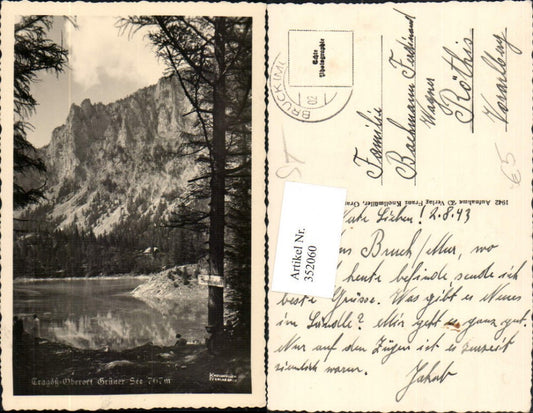 Tragöß-Oberort Grüner See 757m
BRUCK
Echte
Photographie
Familie
Bachmann Ferdinand
Wagner
Röthis
Vorarlberg
65
1942 Aufnahme Verlag Franz Knollmüller, Graz
Artikel Nr.
352060
Liebe Lieben! 2.8.43
Bruck/Mur, wo
heute befinde sende ich
beste Grüsse. Was gibt es Neues
im Ländle? Mir geht es ganz gut.
Nur auf den Zügen ist es zurzeit
ziemlich warm.
Jakob